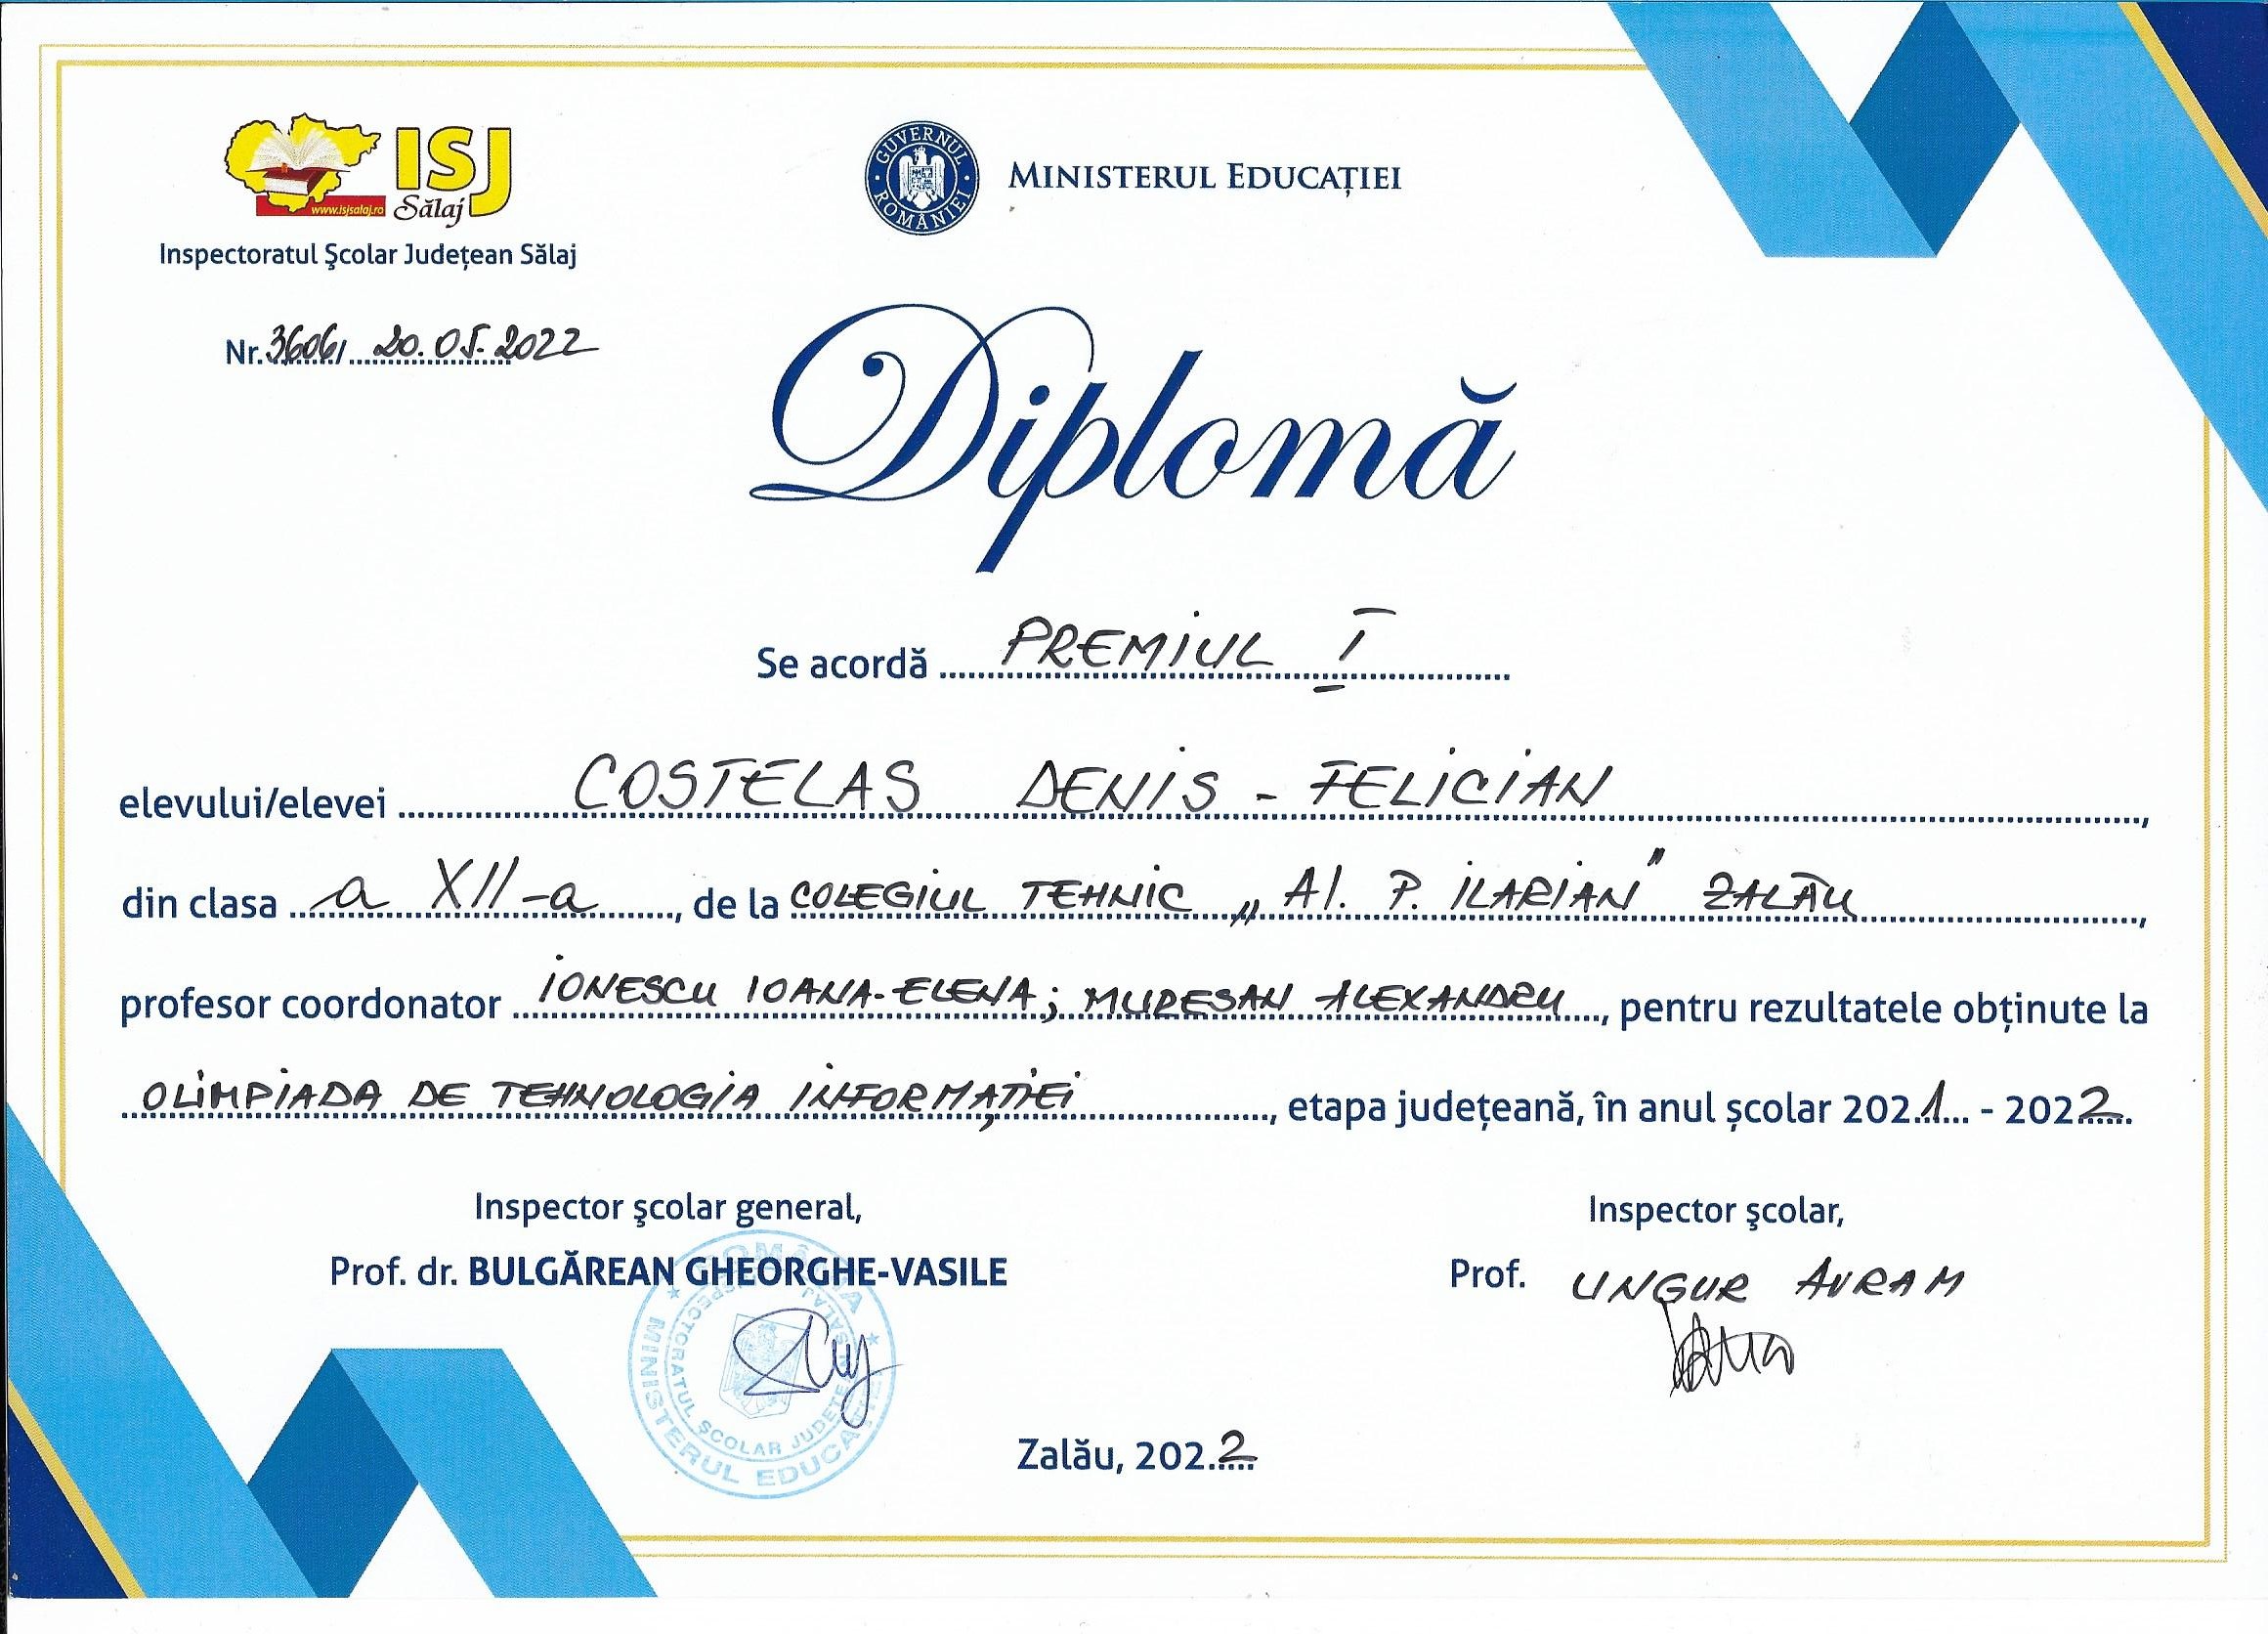 ISJ
Sălaj
www.isjsalaj.ro
Inspectoratul Şcolar Județean Sălaj
GUVERNUL ROMÂNIEI
MINISTERUL EDUCAȚIEI
Nr. 3606/ 20.05.2022
Diplomă
Se acordă PREMIUL I
elevului/elevei COSTELAS DENIS - FELICIAN,
din clasa a XII-a, de la COLEGIUL TEHNIC „Al. P. ILARIAN" ZALĂU,
profesor coordonator IONESCU IOANA-ELENA; MUREȘAN ALEXANDRU, pentru rezultatele obținute la
OLIMPIADA DE TEHNOLOGIA INFORMAȚIEI, etapa județeană, în anul școlar 2021 - 2022
Inspector şcolar general,
Prof. dr. BULGĂREAN GHEORGHE-VASILE
Inspector şcolar,
Prof. UNGUR AVRAM
ROMÂNIA
MINISTERUL EDUCAȚIEI
INSPECTORATUL ŞCOLAR JUDEȚEAN SĂLAJ
Zalău, 2022